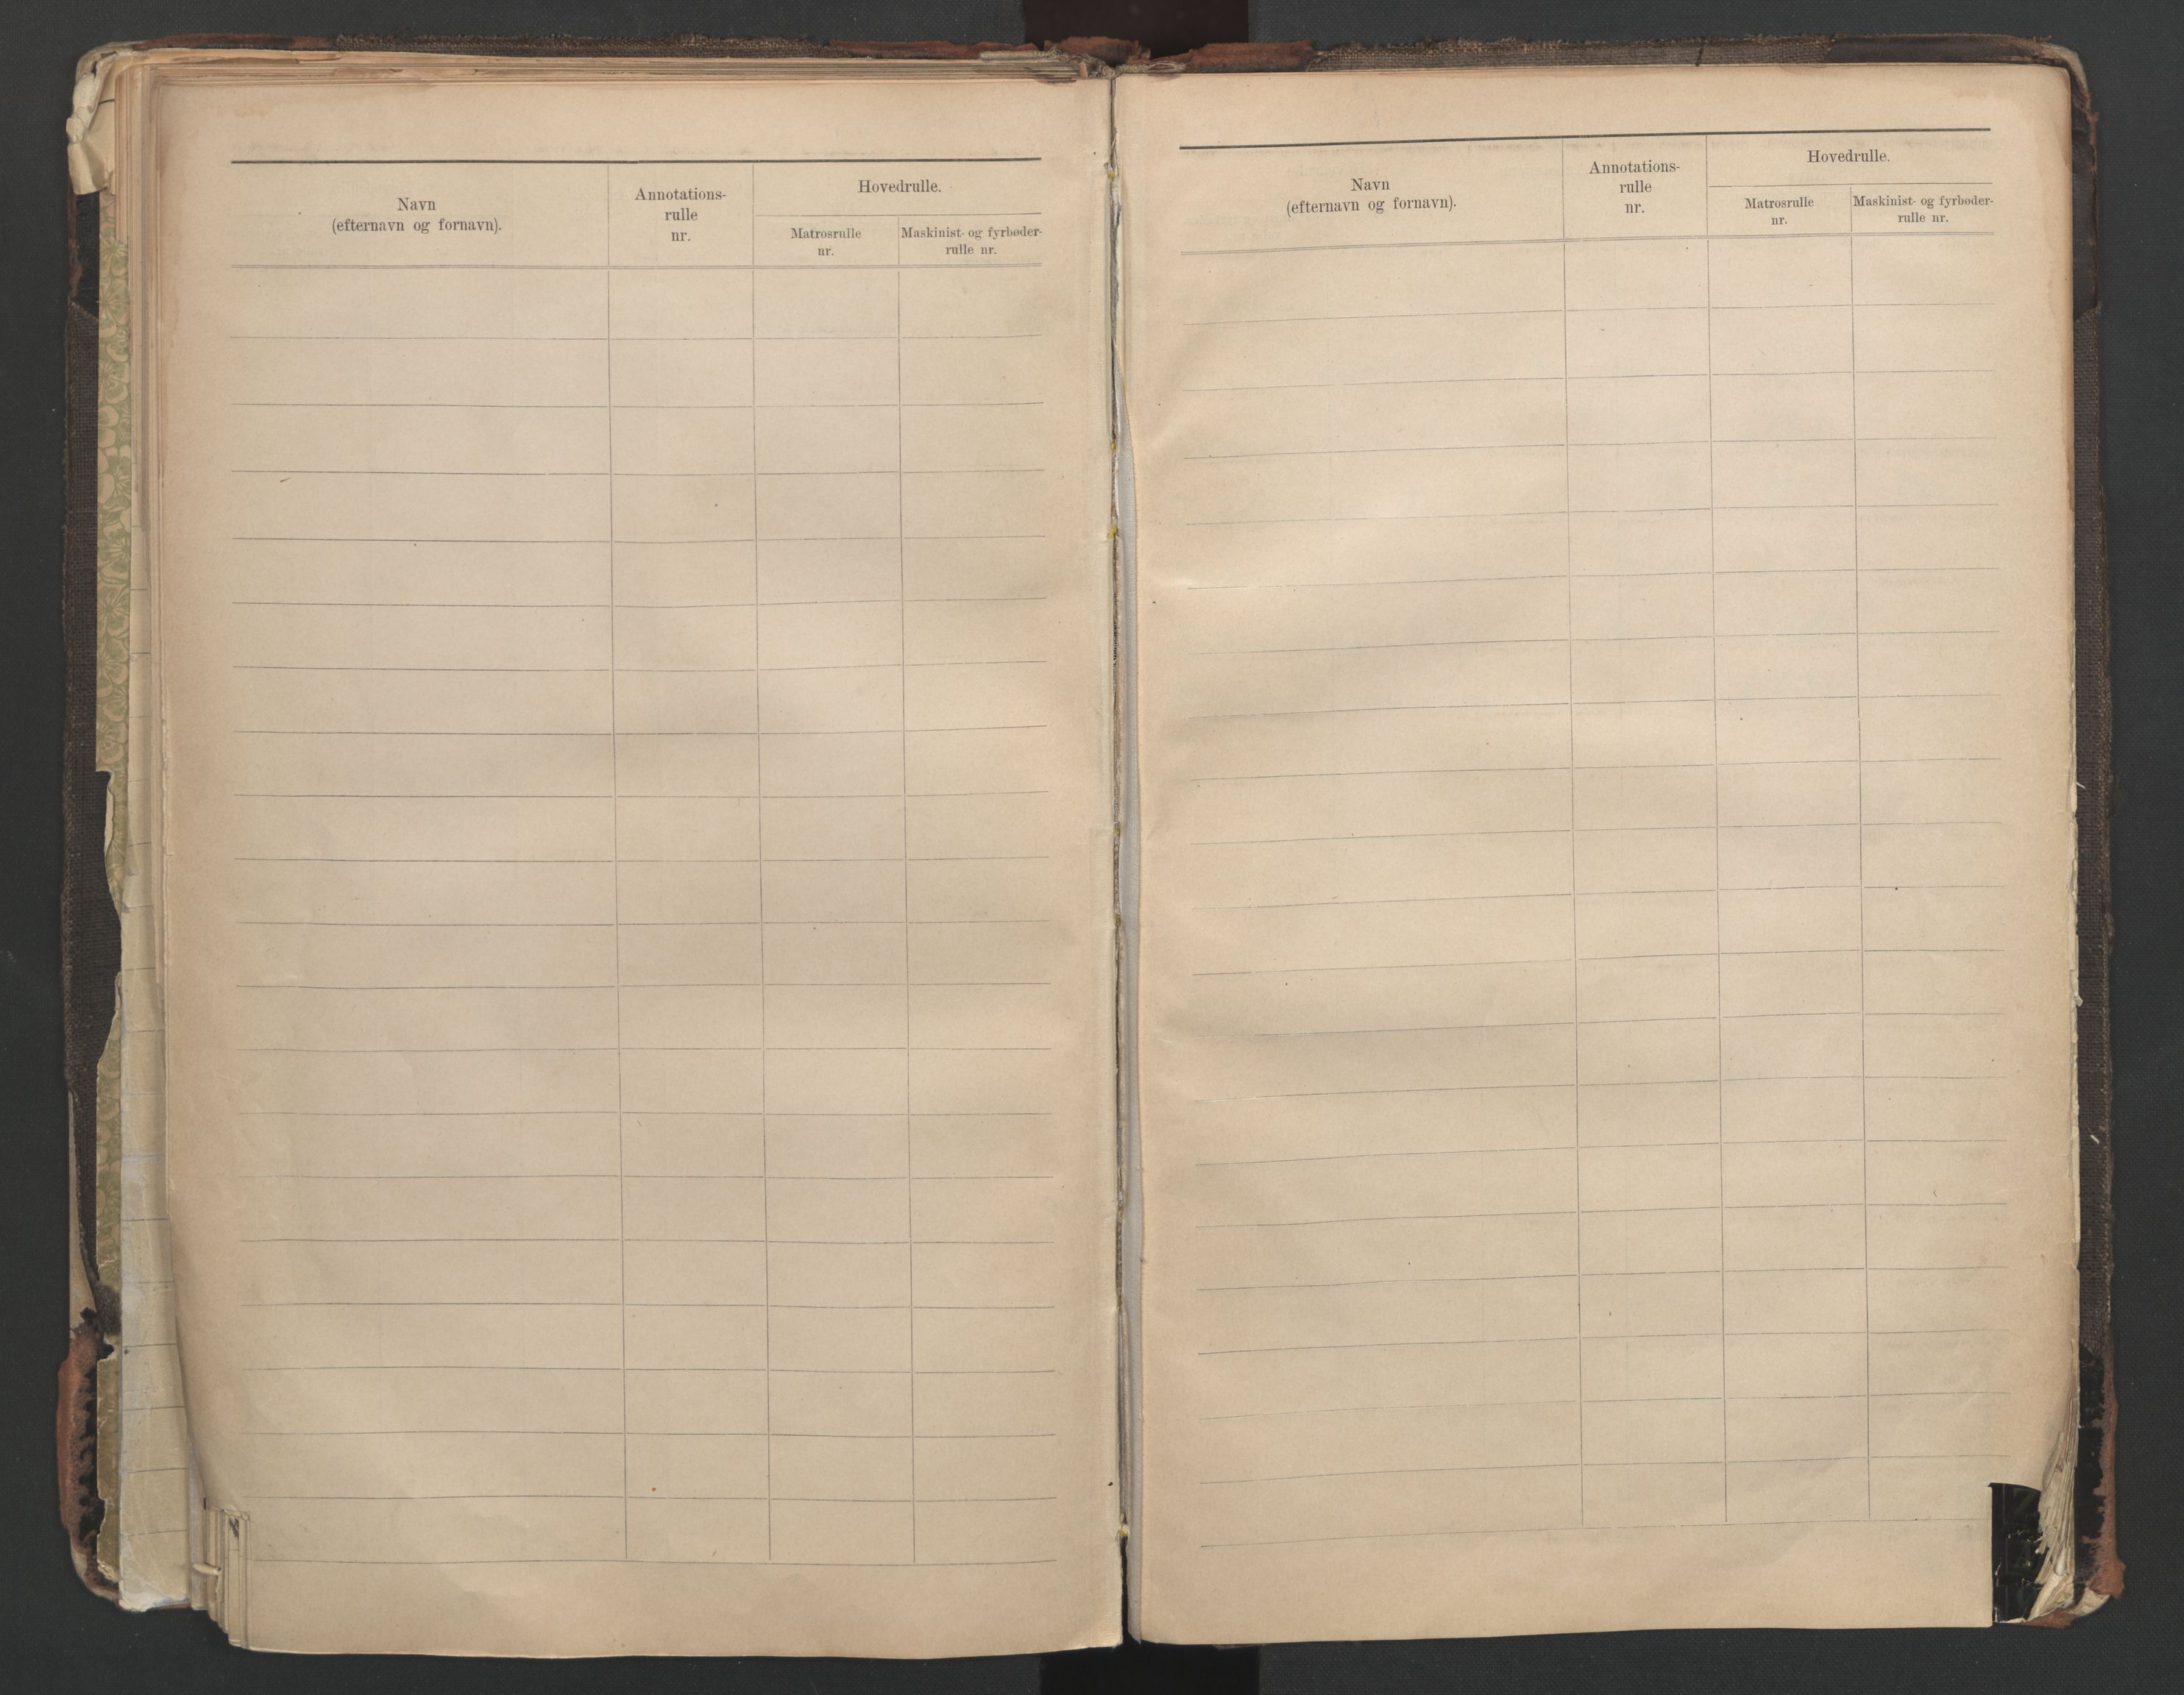 Navn
(efternavn og fornavn).
Annotations-
rulle
nr.
Hovedrulle.
Matrosrulle
nr.
Maskinist- og fyrbøder-
rulle nr.
Navn
(efternavn og fornavn).
Annotations-
rulle
nr.
Hovedrulle.
Matrosrulle
nr.
Maskinist- og fyrbøder-
rulle nr.